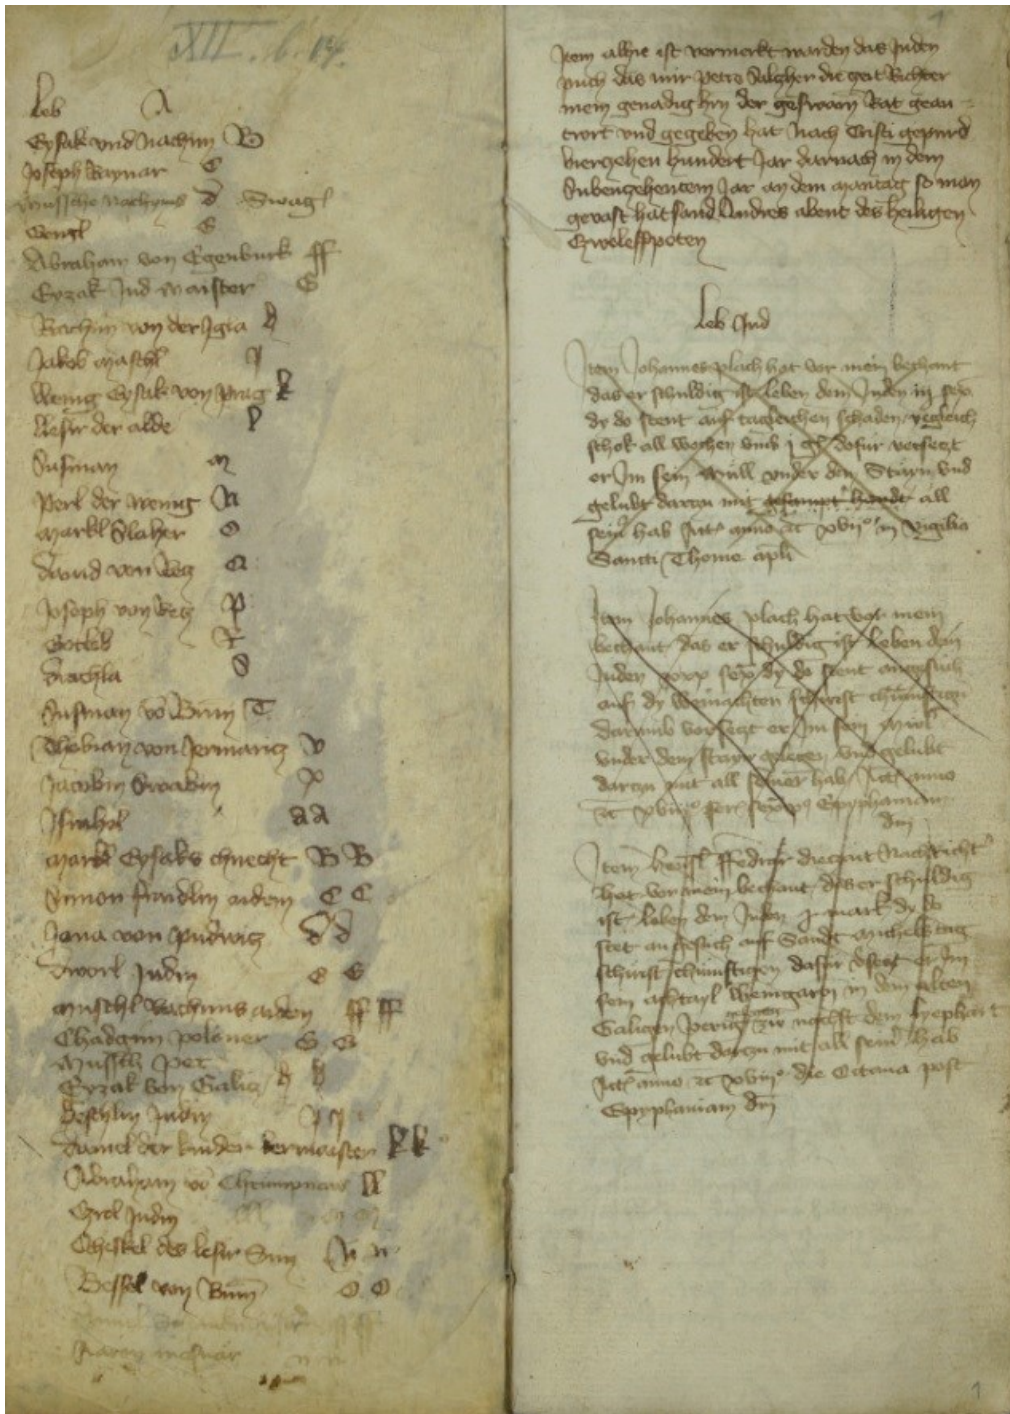 XII. b. 14.
Leb A
Eysak vnd Nachim B
Joseph Raynar C
Mussche Nachyms d Swagl
Gengl E
Abraham von Egenburk ff
Eyzak Jud maister G
Rachim von der Igla h
Jakob Maschl J
Wenig Eysak von prag k
Liesir der alde l
Susman M
Perl der wenig N
Markl Slaher O
dauid von Retz
Joseph von Retz P
Gotleb R
Rachla S
Susman vo Brun T
Thobian von Jermaritz V
Jacobin Swabin X
Israhel AA
Markl Eysaks chnecht BB
Symon frudlin aidem CC
Jona von pudwitz dd
Tworl Judin E E
Muschl Nachims aidem ff ff
Chadgim polsner G G
Mussch per
Eyzak von Galitz h h
Geschlin Judin J J
daniel der kinder lermaister kk
Abraham vo Chrumpnaw ll
Czerl Judin
Cheskel des lesir Sun N N
Bessel von Brun O O
Aaron
1
Item alhie ist vermerkt warden das Juden
puch das mir petro Salgher die zeit Richter
mein genadig hrn der gesworn Rat gean-
twort vnd gegeben hat Nach Cristi gepurd
vierzehen hundert Jar darnach in dem
Subenzehentem Jar an dem mantag so man
gevast hat sand Andres abent des heiligen
Czwelffpoten
Leb Jud
Item Johannes plach hat vor mein bechant
das er schuldig ist leben dem Juden iij sex
dy do stent auf tagleichen schaden yegleich
schok all wochen vmb j gl dofur versetzt
er Im sein Mull vnder den Sturm vnd
gelubt darczu mit gesampt handt all
seinr hab Actum anno etc xvijo in vigilia
Sancti Thome apli
Item Johannes plach hat vor mein
bechant das er schuldig ist Leben dem
Juden xxx sex dy do stent angesuch
auf dy Weinachten schirist chumftign
darumb versetzt er Im sein Mul
vnder dem sturm gelegen vnd gelubt
darczu mit all seiner hab Actum anno
etc xviijo fer Epyphaniam
dm
Item die czeit Nachricht
hat vor mein bechant das er schuldig
ist leben dem Juden j mark dy do
stet an gesuch auf Sandt Michels tag
schirist chumftigen dafur er Im
sein achtayl Weingarn in dem alten
Galigen perig nachst dem
vnd gelubt darczu mit all seinr hab
Actum anno etc xviijo die Octaua post
Epyphaniam dm
1